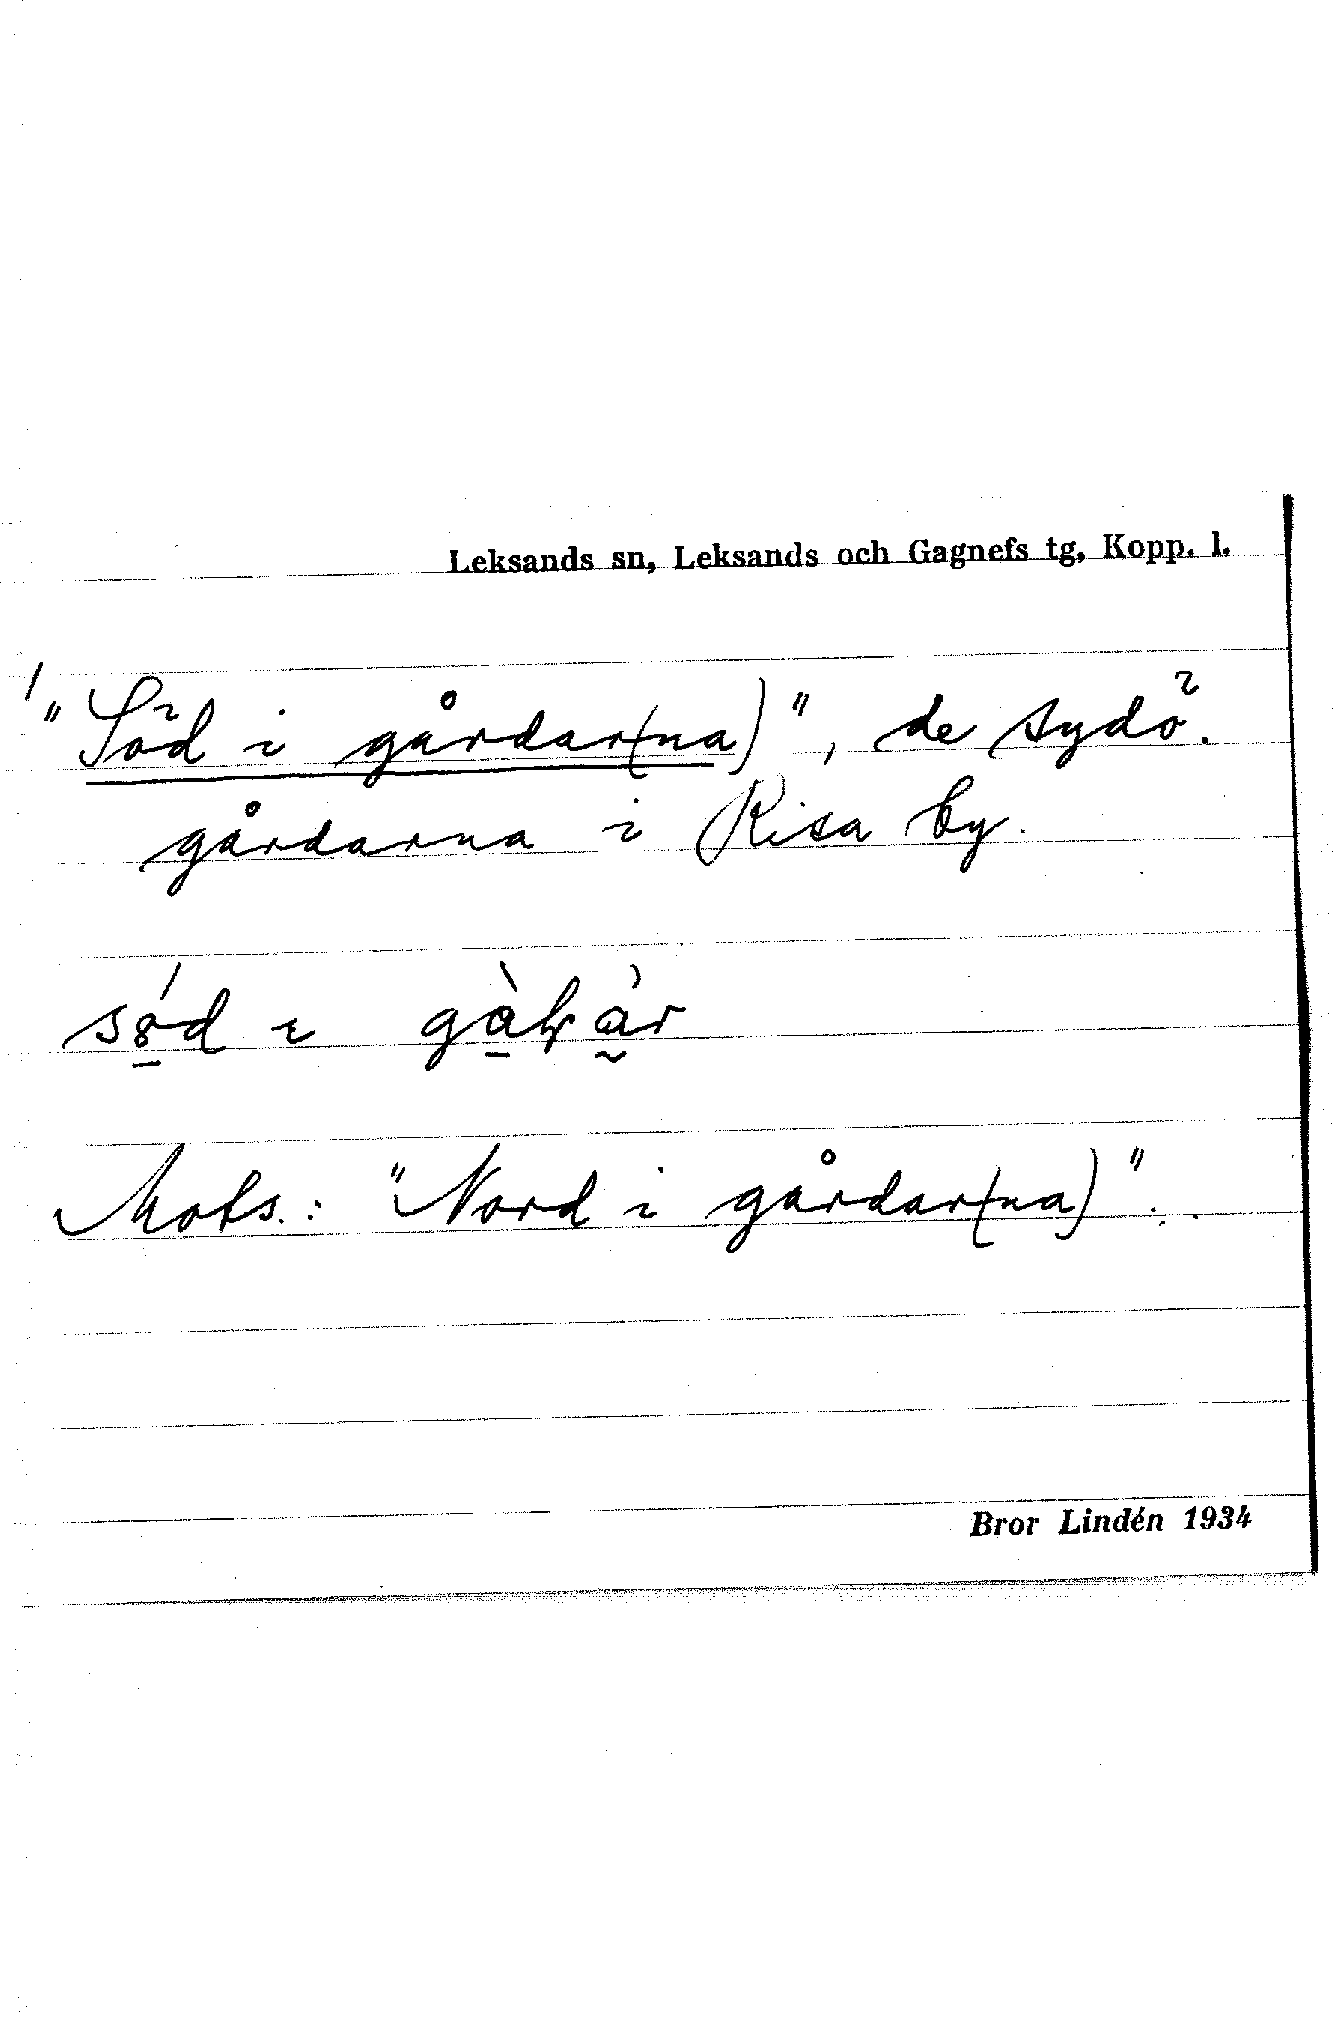 Leksands sn, Leksands och Gagnefs tg, Kopp. l.
"Söd i gårdar(na)", de sydö.
gårdarna i Risa by.
Mots.: "Nord i gårdar(na)".
Bror Lindén 1934